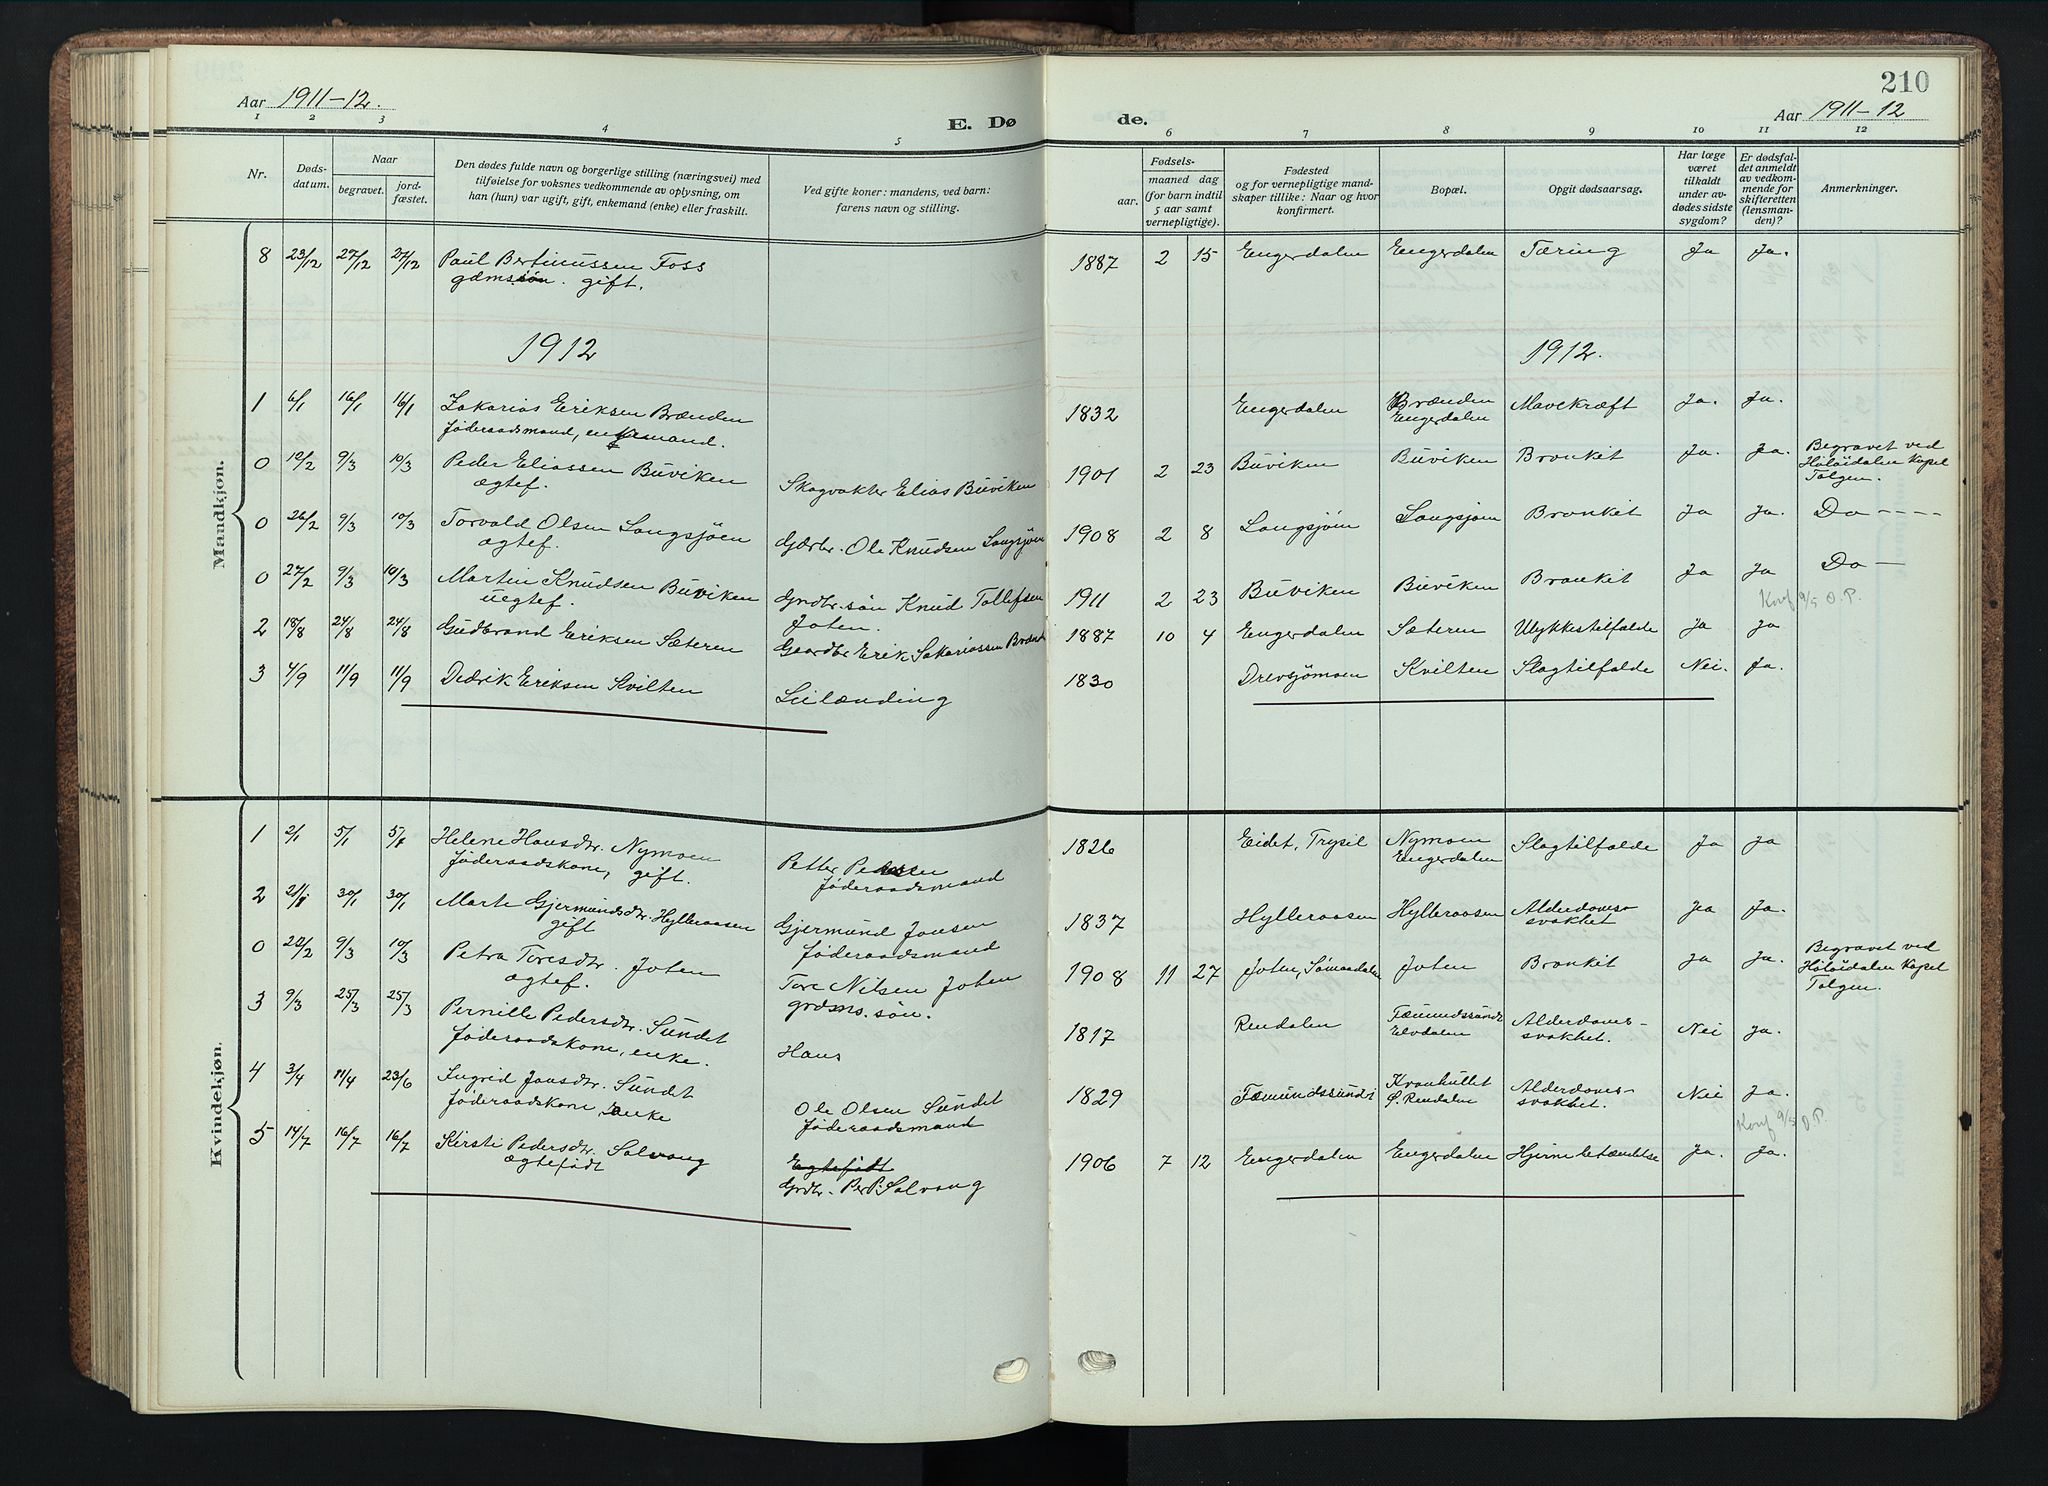 210
Aar 1911-12.
Aar 1911-12
E. Dø de.
1 2 3 4 5 6 7 8 9 10 11 12
Nr.
Døds-
datum.
Naar
begravet.
jord-
fæstet.
Den dødes fulde navn og borgerlige stilling (næringsvei) med
tilføielse for voksnes vedkommende av oplysning, om
han (hun) var ugift, gift, enkemand (enke) eller fraskilt.
Ved gifte koner: mandens, ved barn:
farens navn og stilling.
Fødsels-
aar.
maaned dag
(for barn indtil
5 aar samt
vernepligtige).
Fødested
og for vernepligtige mand-
skaper tillike: Naar og hvor
konfirmert.
Bopæl.
Opgit dødsaarsag.
Har læge
været
tilkaldt
under av-
dødes sidste
sygdom?
Er dødsfal-
det anmeldt
av vedkom-
mende for
skifteretten
(lensman-
den)?
Anmerkninger.
Mandkjøn.
8 23/12 27/12 27/12 Paul Bertinussen Foss 1887 2 15 Engerdalen Engerdalen Tæring Ja Ja.
gdmsøn. gift.
1912 1912.
1 6/1 16/1 16/1 Zakarias Eriksen Brænden 1832 Engerdalen Brænden Mavekræft Ja. Ja.
Føderaadsmand, enkemand. Engerdalen
0 19/2 9/3 10/3 Peder Eliassen Buviken Skogvakter Elias Buviken 1901 2 23 Buviken Buviken Bronkit Ja. Ja. Begravet ved
ægtef. Holøidalen Kapel
Tolgen.
0 26/2 9/3 10/3 Torvald Olsen Langsjøen Gdrbr. Ole Knudsen Langsjøen 1908 2 8 Langsjøen Langsjøen Bronkit Ja Ja. Do ----
ægtef.
0 27/2 9/3 10/3 Martin Knudsen Buviken Grdbr. søn Knud Tollefsen 1911 2 23 Buviken Buviken Bronkit Ja Ja Do -
uegtef. Joten. Konf 9/5 O.P.
2 18/8 24/8 24/8 Gudbrand Eriksen Sæteren Gaardbr Erik Sakariassen Brænd 1887 10 4 Engerdalen Sæteren Ulykkestilfælde Ja Ja
3 4/9 11/9 11/9 Didrik Eriksen Kvilten Leilænding 1830 Drevsjømoen Kvilten Slagtilfælde Nei. Ja.
Kvindekjøn.
1 2/1 5/1 5/1 Helene Hansdtr. Nymoen Petter Pedersen 1826 Eidet, Trysil Nymoen Slagtilfælde Ja Ja
Føderaadskone, gift. Føderaadsmand Engerdalen
2 21/1 30/1 30/1 Marte Gjermundsdtr. Hylleraasen Gjermund Jonsen 1837 Hylleraasen Hylleraasen Alderdoms- Ja Ja.
gift Føderaadsmand svakhet
0 20/2 9/3 10/3 Petra Toresdtr. Joten Tore Nilsen Joten 1908 11 27 Joten, Sømaadalen Joten Bronkit Ja Ja. Begravet ved
ægtef. grdms. søn. Holøidalen Kapel
Tolgen.
3 9/3 25/3 25/3 Pernille Pedersdtr. Sundet Hans 1817 Rendalen Fæmundssundet Alderdoms- Nei Ja.
Føderaadskone, enke. Elvdalen svakhet.
4 3/4 11/4 23/6 Ingrid Jonsdtr. Sundet Ole Olsen Sundet 1829 Fæmundssundet Alderdoms- Nei Ja.
Føderaadskone, enke Føderaadsmand Ø. Rendalen svakhet.
Konf 9/5 O.P.
5 14/7 16/7 16/7 Kirsti Pedersdtr. Solvang Egtefødt 1906 7 12 Engerdalen Engerdalen Hjernebetændelse Ja. Ja.
Ægtefødt Grdbr. Per P. Solvang